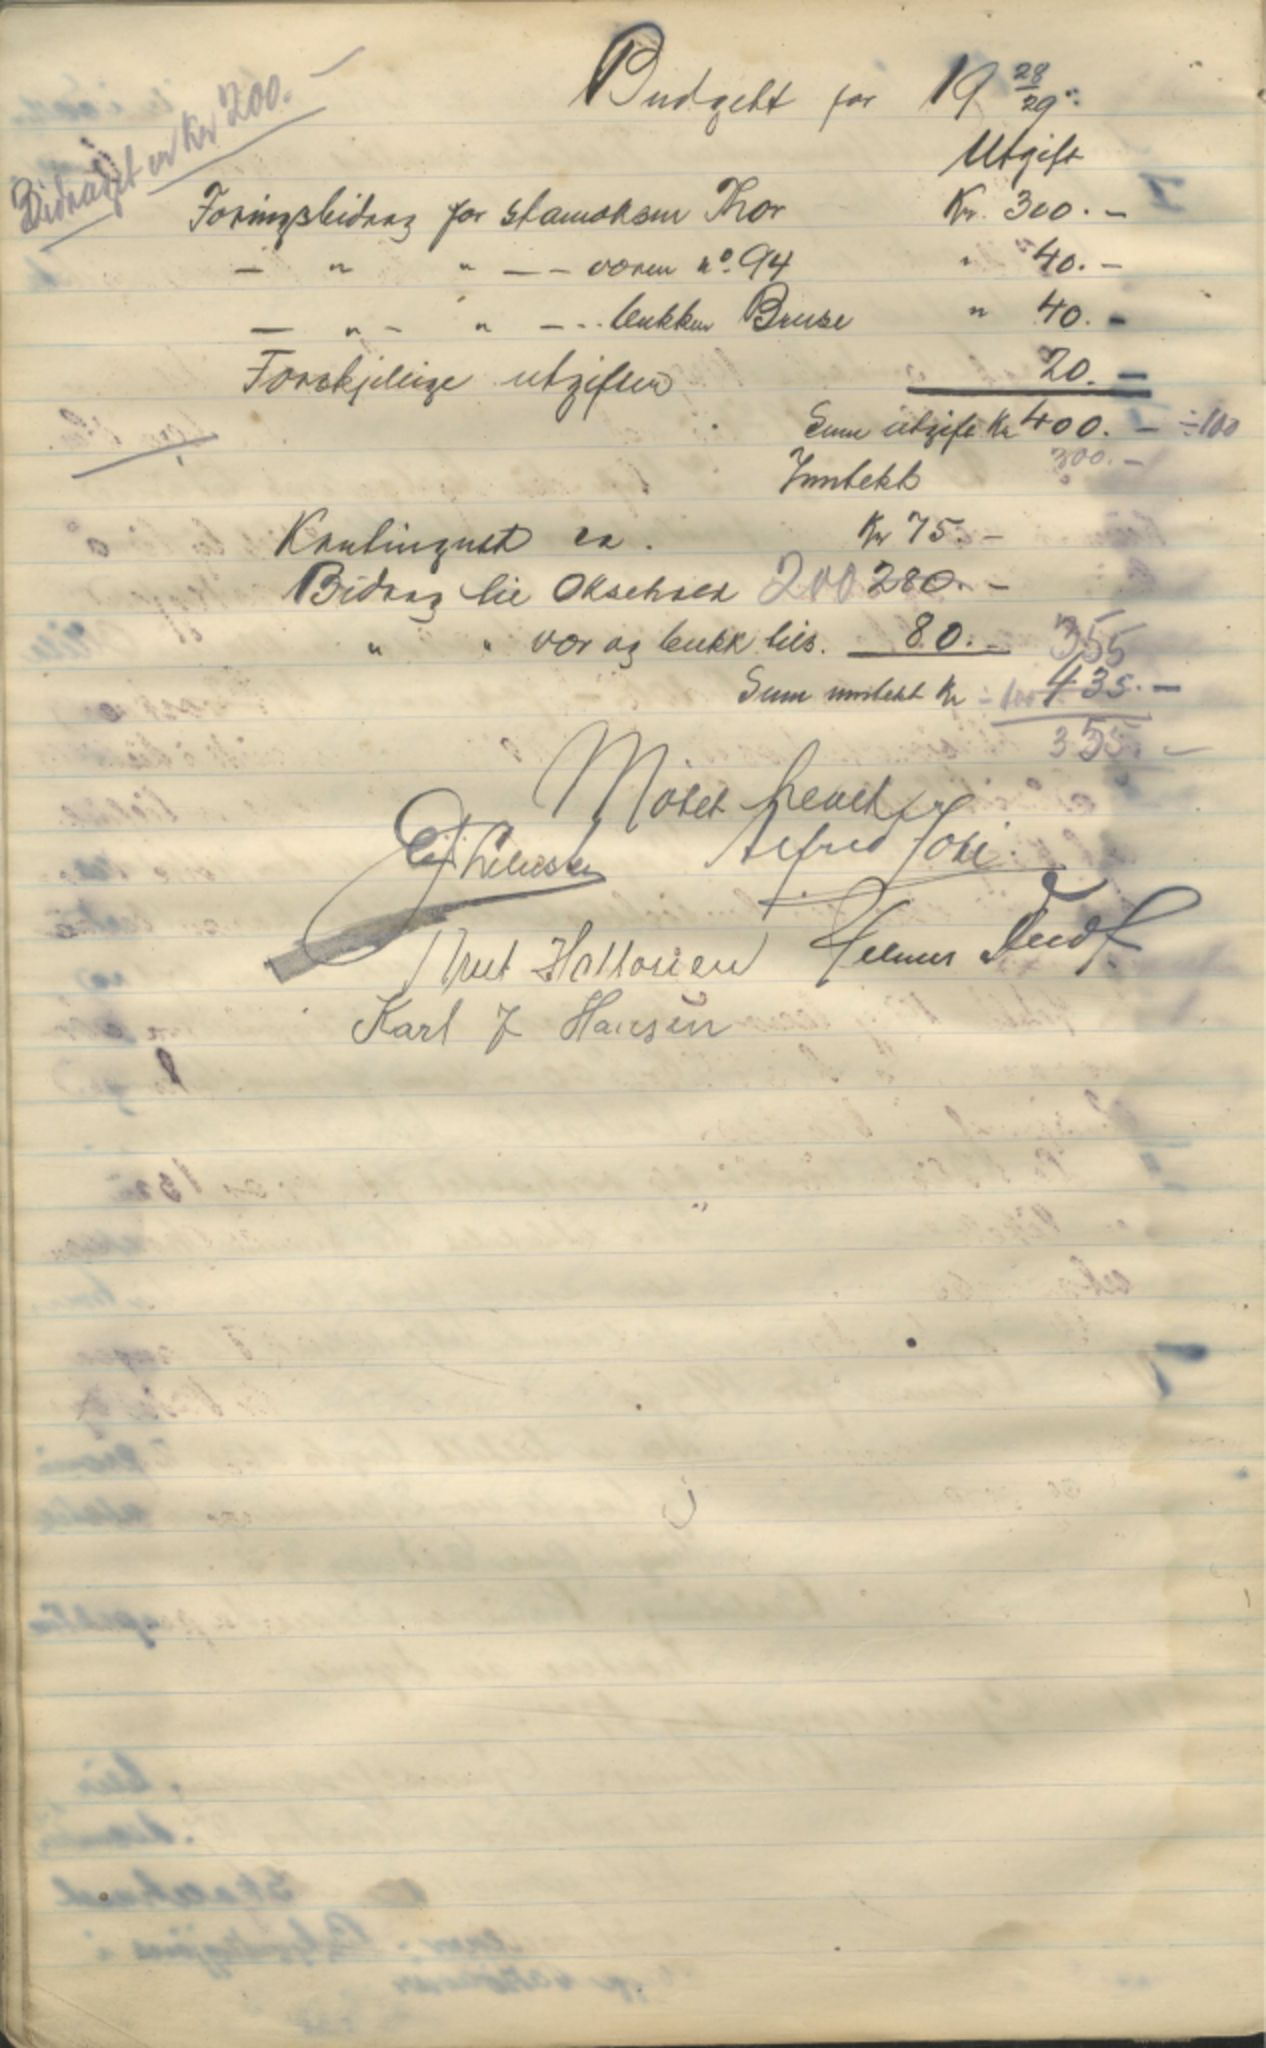 Budgett for 19 28/29
Bidraget er Kr 200.-
Utgift
Foringsbidrag for stamoksen Thor Kr. 300.-
- " " - - væren no. 94 " 40.-
- " - " - - bukken Bruse " 40.-
Forskjellige utgifter 20.-
Sum utgift Kr 400.- ÷100
300.-
Inntekt
Kontingent ca. Kr 75.-
Bidrag til Oksehold 200 280.-
" " vær og bukk hils. 80.- 355
Sum inntekt Kr ÷100 435.-
355.-
Møtet hevet
Alfred Foss
Knut Halvorsen
Karl J Hansen